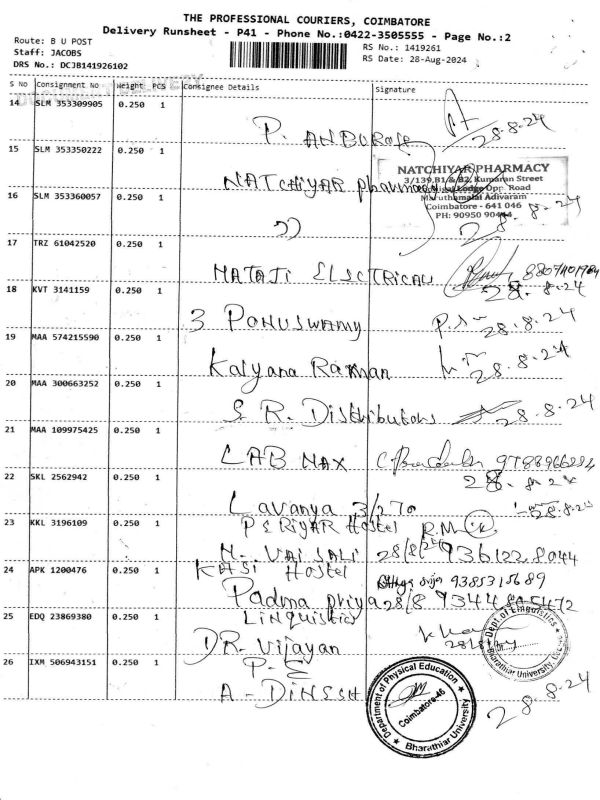 THE PROFESSIONAL COURIERS, COIMBATORE
Delivery Runsheet - P41 - Phone No.:0422-3505555 - Page No.:2
Route: B U POST
Staff: JACOBS
DRS No.: DCJB141926102
RS No.: 1419261
RS Date: 28-Aug-2024
S No Consignment No Weight PCS Consignee Details Signature
14 SLM 353309905 0.250 1
P. 28-8-24
15 SLM 353350222 0.250 1
NATCHIYAR PHARMACY
3/139,B1 & B2, Kumaran Street
Opp. Road
Maruthamalai Adivaram
Coimbatore - 641 046
PH: 90950
NATCHIYAR Pharmacy
16 SLM 353360057 0.250 1
28-8-24
17 TRZ 61042520 0.250 1
MATAJI ELECTRICAL
28-8-24
18 KVT 3141159 0.250 1
3 PONUSWAMY 28-8-24
19 MAA 574215590 0.250 1
Kalyana Raman 28-8-24
20 MAA 300663252 0.250 1
S. R. Distributors 28-8-24
21 MAA 109975425 0.250 1
LAB MAX
22 SKL 2562942 0.250 1
Lavanya 3/270
23 KKL 3196109 0.250 1
PERIYAR Hostel R.M
N. VAISALI 28/8/24
24 APK 1200476 0.250 1
KASI Hostel 9385315689
Padma priya 28/8
25 EDQ 23869380 0.250 1
Linguistics
DR. Vijayan
Dept of Linguistics
Bharathiar University
26 IXM 506943151 0.250 1
P. E
A - DINESH
Department of Physical Education
Coimbatore-46
Bharathiar University
28-8-24